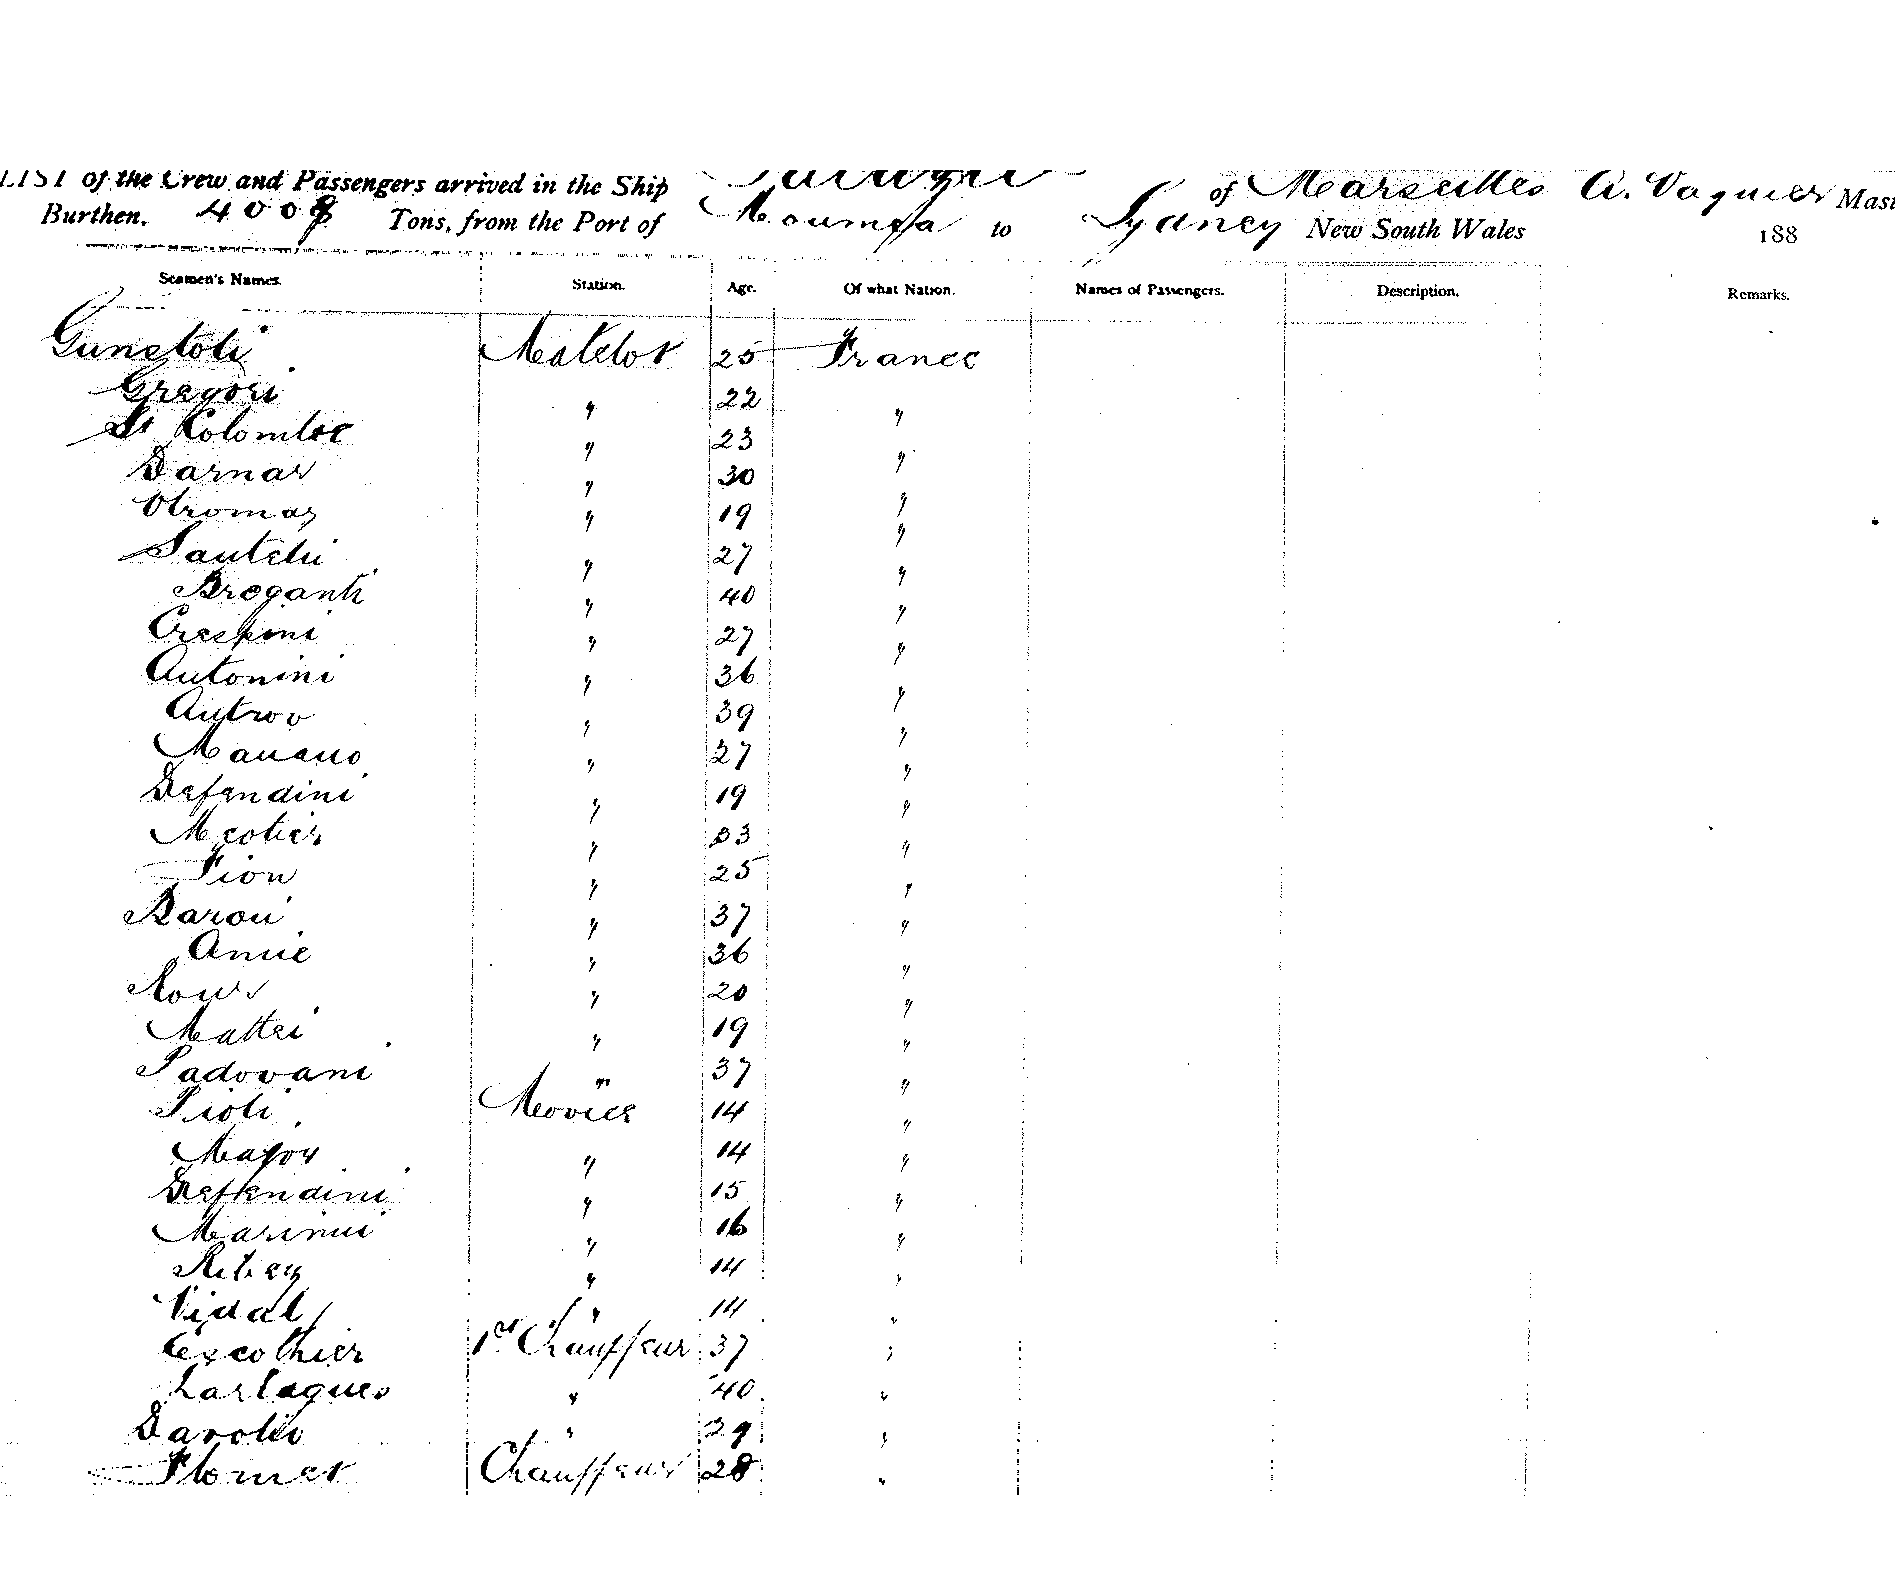 LIST of the Crew and Passengers arrived in the Ship of Marseilles A. Vaquier Mast
Burthen, 4008 Tons, from the Port of Noumea to Sydney New South Wales 188
Seamen's Names. Station. Age. Of what Nation. Names of Passengers. Description. Remarks.
Matelot 25 France
Gregori " 22 "
St Colombe " 23 "
Darnas " 30 "
" 19 "
Santelli " 27 "
Breganti " 40 "
Crespini " 27 "
Antonini " 36 "
" 39 "
" 27 "
Defendini " 19 "
" 33 "
Fion " 25 "
Baroni " 37 "
Amic " 36 "
Roux " 20 "
Mattei " 19 "
Padovani " 37 "
Pioli Novice 14 "
Major " 14 "
Defendini " 15 "
Marinui " 16 "
" 14 "
Vidal " 14 "
Escothier 1er Chauffeur 37 "
Lartagues " 40 "
" 29 "
Chauffeur 28 "